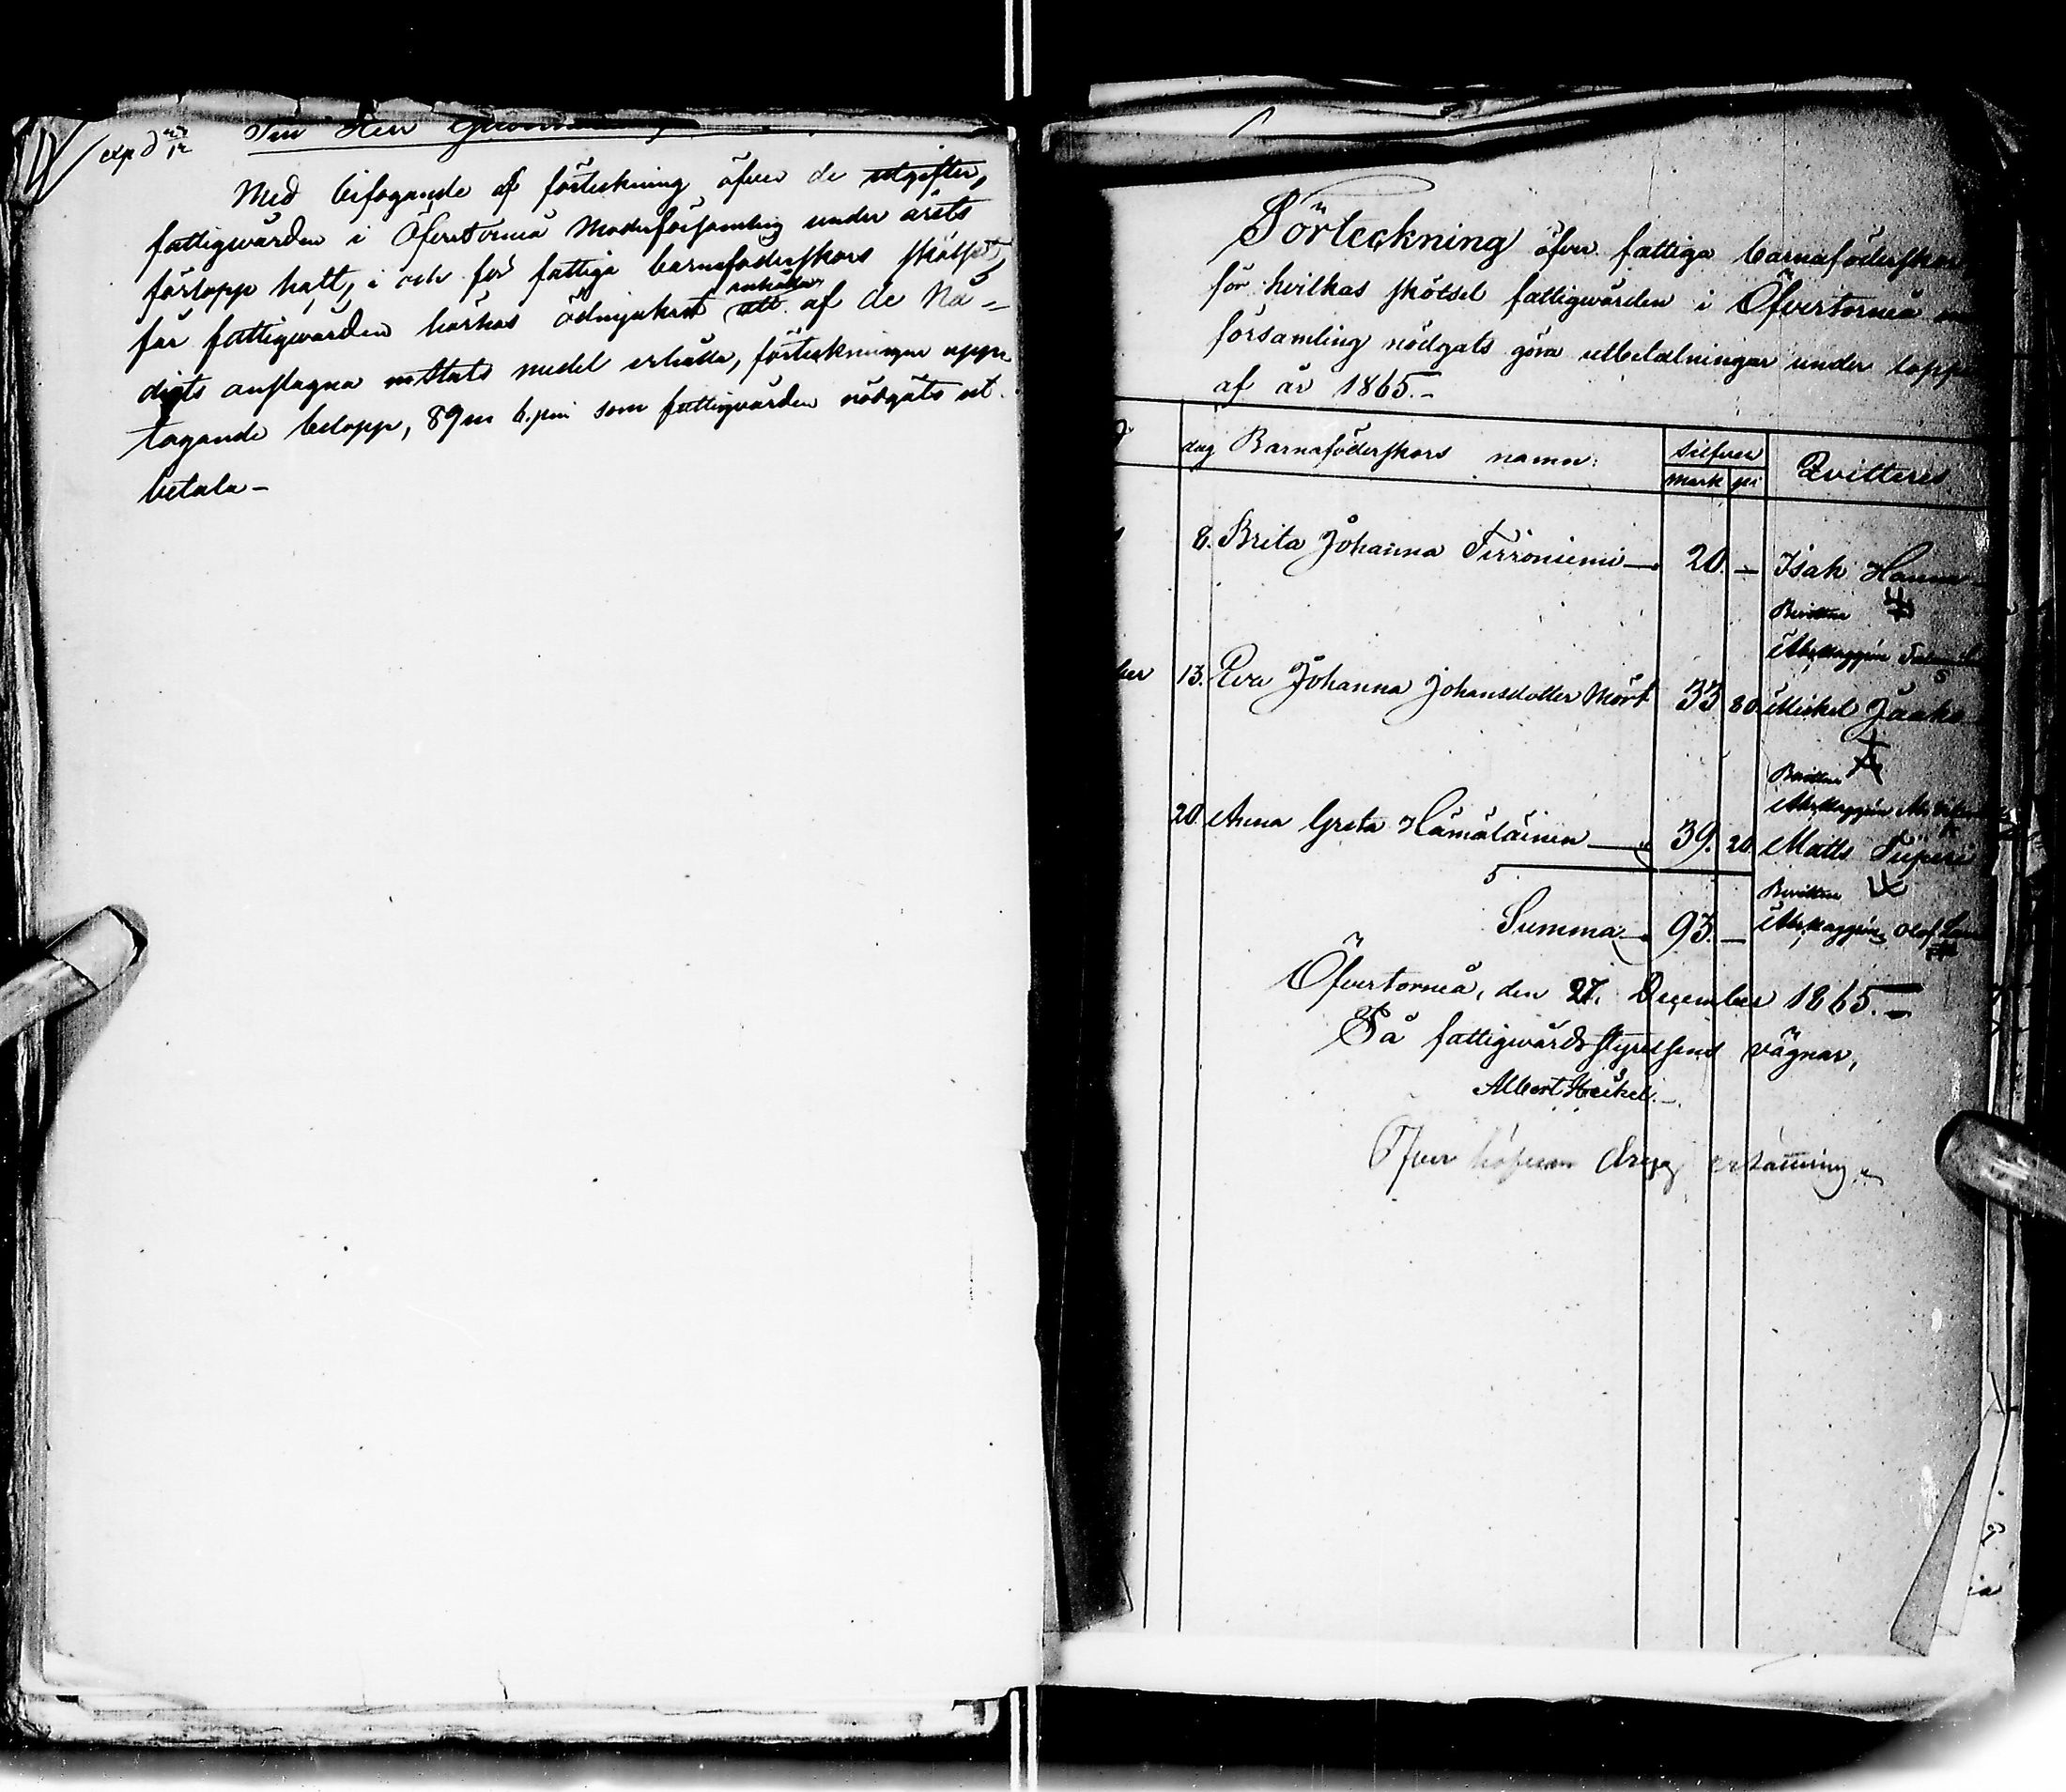 expd 27/12 Till Herr
Med bifogande af förteckning öfver de utgifter,
fattigvården i Öfvertorneå Moderförsamling under årets
förlopp haft, i och för fattiga barnaföderskors skötsel,
får fattigvården härhos ödmjukast anhålla att af de Nå-
digts anslagna Stats medel erhålla, förteckningen upp
tagande belopp, 89 m 6. pni som fattigvården nödgats ut
betala –
Förteckning öfver fattiga barnaföderskor
för hvilkas skötsel fattigvården i Öfvertorneå
församling nödgats göra utbetalningar under lopp
af år 1865. –
dag Barnaföderskors namn: Silfver Qvitteres
mark pi
8. Brita Johanna Tirroniemi — 20. – Isak Hannu
Bevittna
13. Eva Johanna Johansdotter Mört 33 80 Mickel Jaako
Bevittna
20. Anna Greta Hämäläinen — 39. 20 Matts Piiperi
Bevittna
Summa — 93. – Olof
Öfvertorneå, den 27. December 1865. –
På fattigvårdsstyrelsens vägnar,
Albert Heikel. –